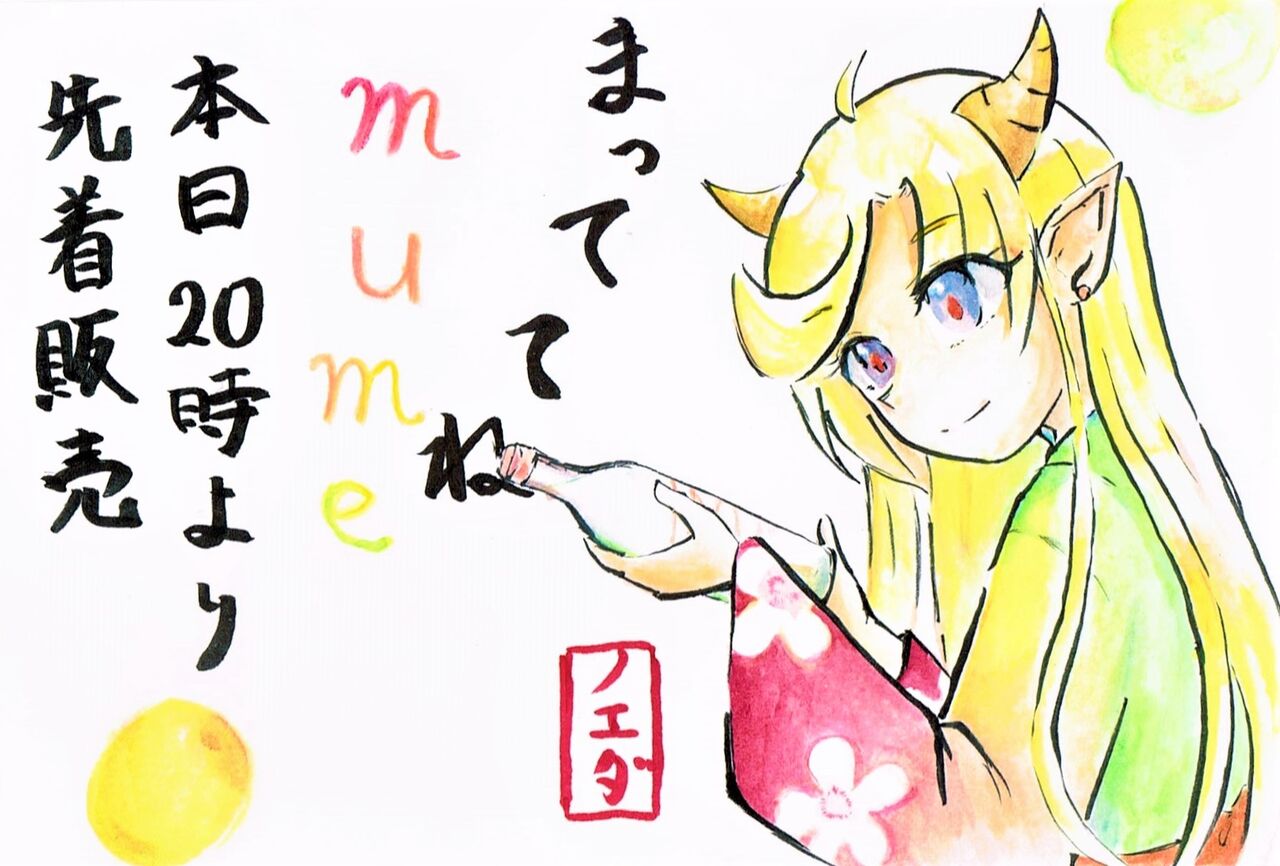 まっててね
mume
本日20時より
先着販売
ノエダ